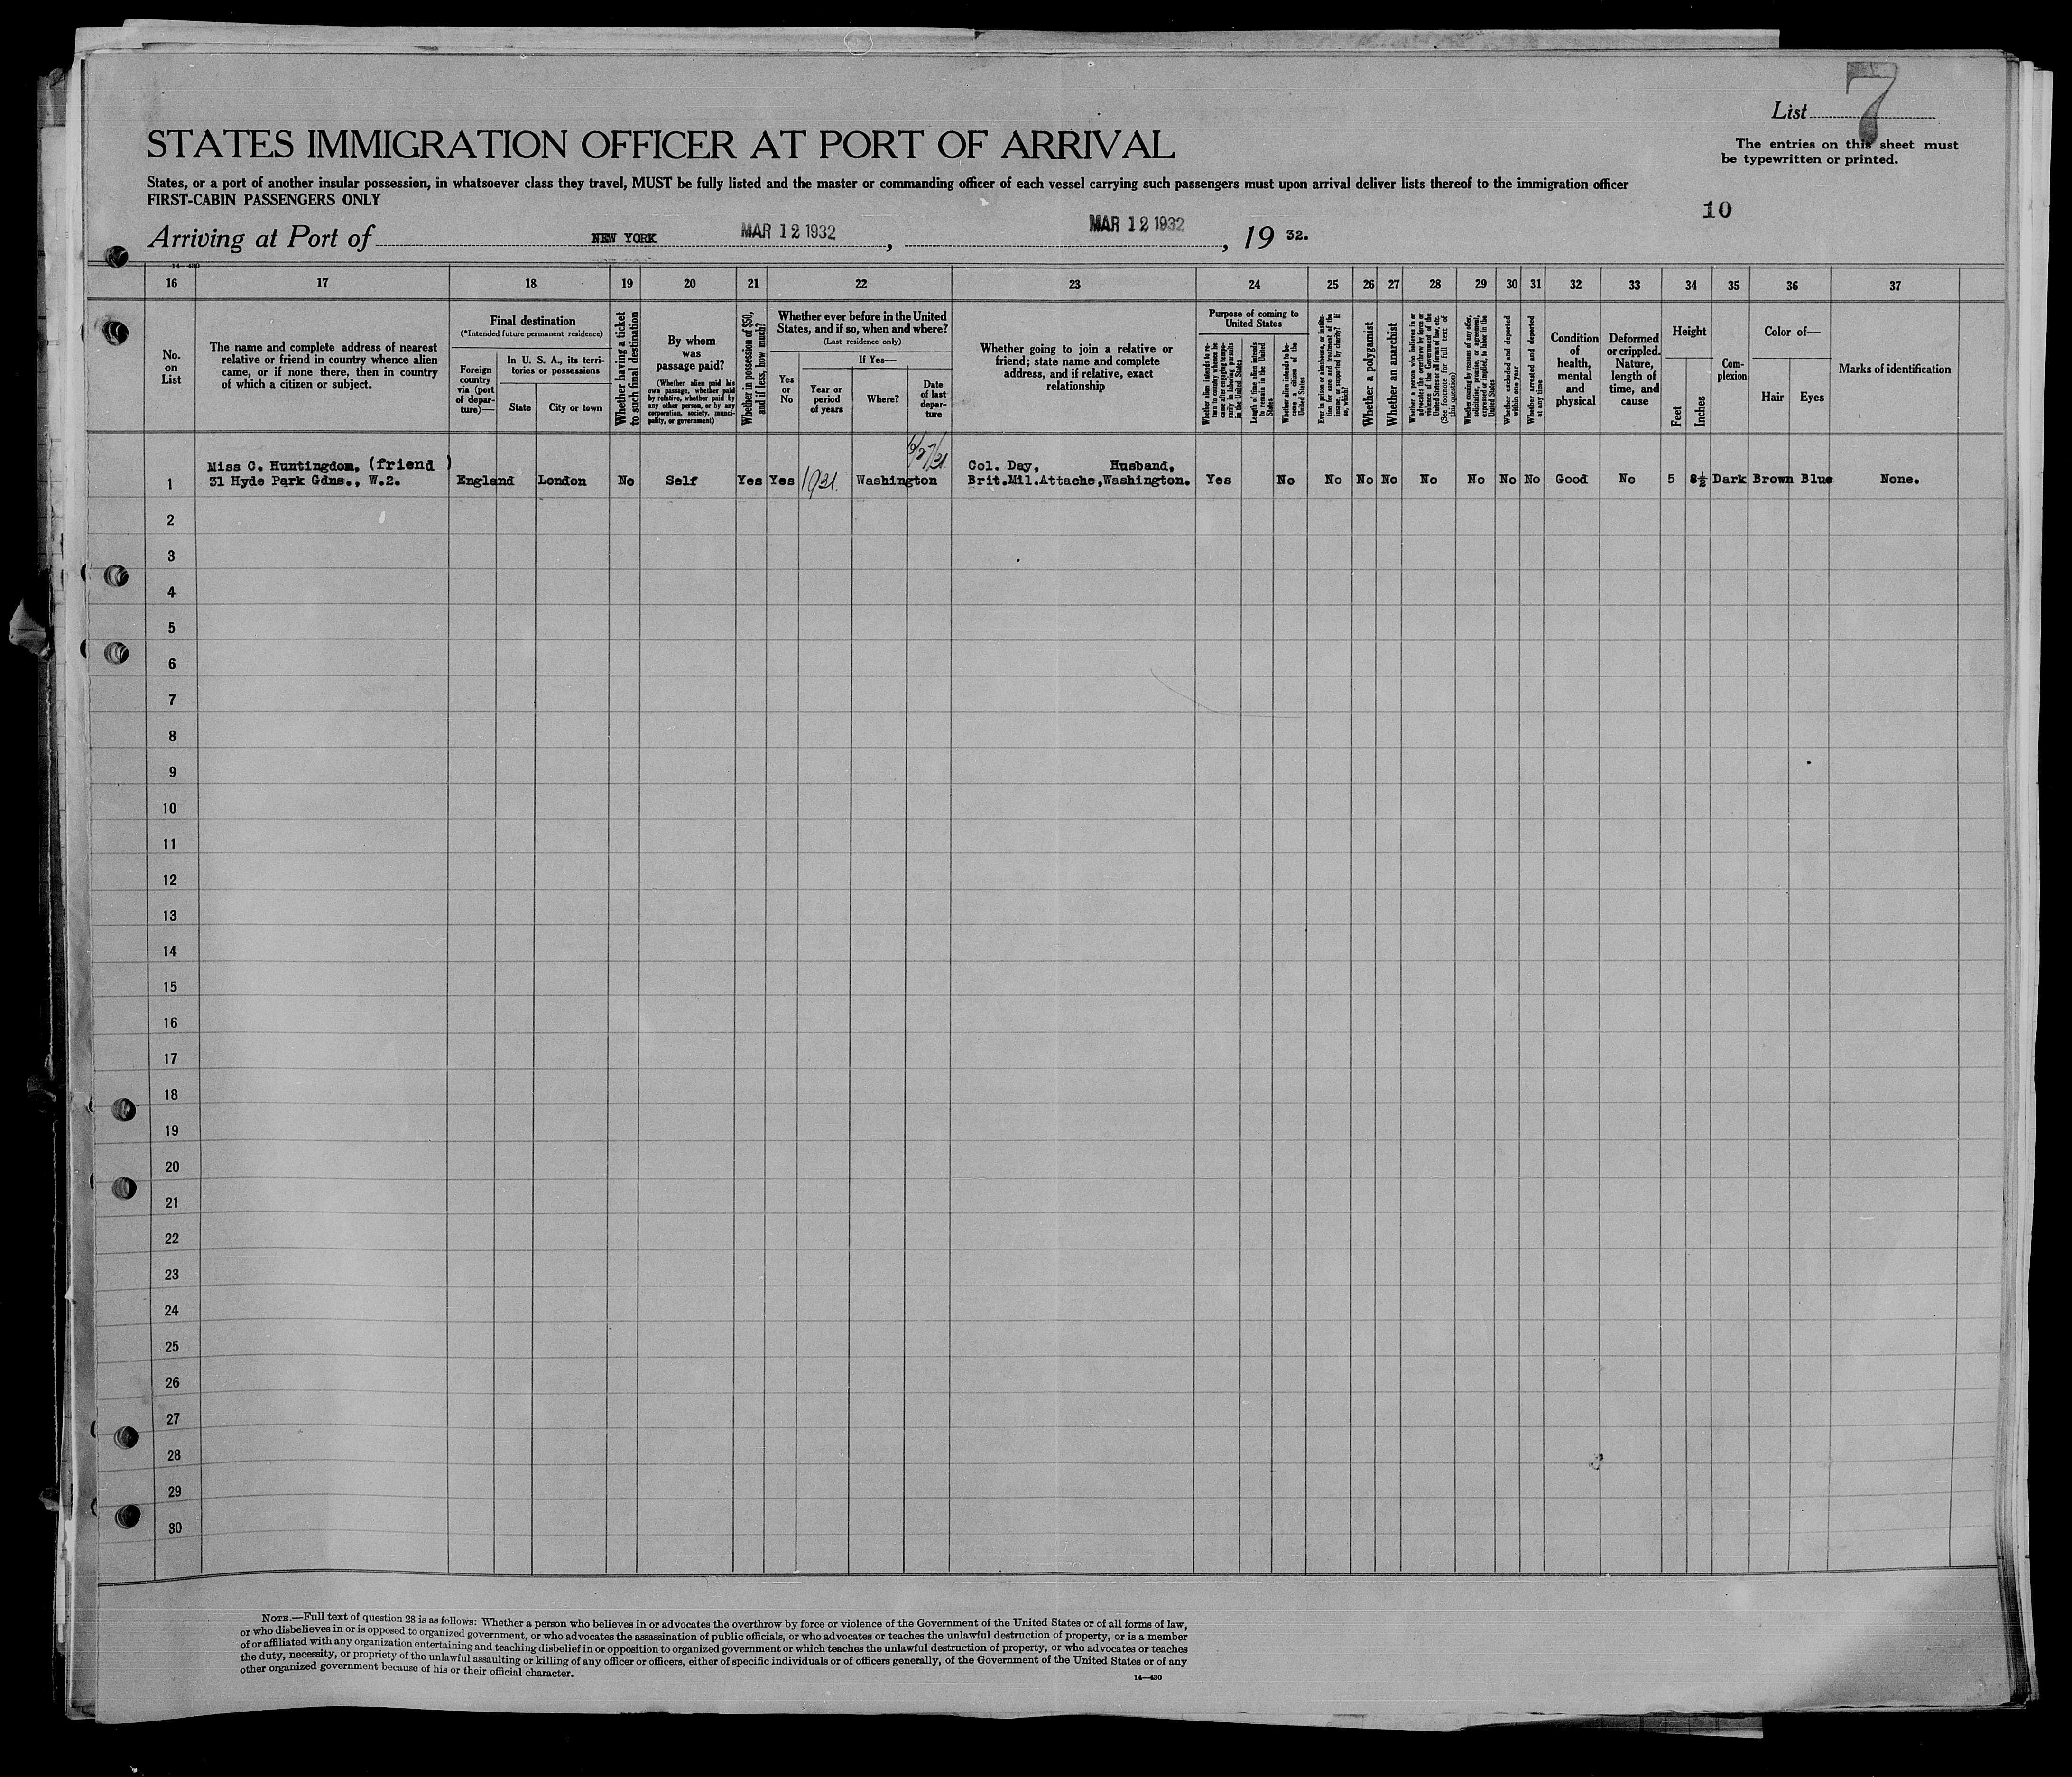 List 7
The entries on this sheet must
be typewritten or printed.
STATES IMMIGRATION OFFICER AT PORT OF ARRIVAL
States, or a port of another insular possession, in whatsoever class they travel, MUST be fully listed and the master or commanding officer of each vessel carrying such passengers must upon arrival deliver lists thereof to the immigration officer
FIRST-CABIN PASSENGERS ONLY
10
Arriving at Port of NEW YORK MAR 12 1932, MAR 12 1932, 19 32.
14—430
16 17 18 19 20 21 22 23 24 25 26 27 28 29 30 31 32 33 34 35 36 37
No.
on
List
The name and complete address of nearest
relative or friend in country whence alien
came, or if none there, then in country
of which a citizen or subject.
Final destination
(*Intended future permanent residence)
Foreign
country
via (port
of depar-
ture)—
In U. S. A., its terri-
tories or possessions
State
City or town
Whether having a ticket
to such final destination
By whom
was
passage paid?
(Whether alien paid his
own passage, whether paid
by relative, whether paid by
any other person, or by any
corporation, society, munici-
pality, or government)
Whether in possession of $50,
and if less, how much?
Whether ever before in the United
States, and if so, when and where?
(Last residence only)
Yes
or
No
If Yes—
Year or
period
of years
Where?
Date
of last
depar-
ture
Whether going to join a relative or
friend; state name and complete
address, and if relative, exact
relationship
Purpose of coming to
United States
Whether alien intends to re-
turn to country whence he
came after engaging tempo-
rarily in laboring pursuits
in the United States
Length of time alien intends
to remain in the United
States
Whether alien intends to be-
come a citizen of the
United States
Ever in prison or almshouse, or institu-
tion for care and treatment of the
insane, or supported by charity? If
so, which?
Whether a polygamist
Whether an anarchist
Whether a person who believes in or
advocates the overthrow by force or
violence of the Government of the
United States or all forms of law, etc.
(See footnote for full text of
this question)
Whether coming by reasons of any offer,
solicitation, promise, or agreement,
expressed or implied, to labor in the
United States
Whether excluded and deported
within one year
Whether arrested and deported
at any time
Condition
of
health,
mental
and
physical
Deformed
or crippled.
Nature,
length of
time, and
cause
Height
Feet
Inches
Com-
plexion
Color of—
Hair
Eyes
Marks of identification
6/7/21
Miss C. Huntingdon, (friend ) Col. Day, Husband,
1 31 Hyde Park Gdns., W.2. England London No Self Yes Yes 1921. Washington Brit.Mil.Attache,Washington. Yes No No No No No No No No Good No 5 8½ Dark Brown Blue None.
2
3
4
5
6
7
8
9
10
11
12
13
14
15
16
17
18
19
20
21
22
23
24
25
26
27
28
29
30
NOTE.—Full text of question 28 is as follows: Whether a person who believes in or advocates the overthrow by force or violence of the Government of the United States or of all forms of law,
or who disbelieves in or is opposed to organized government, or who advocates the assassination of public officials, or who advocates or teaches the unlawful destruction of property, or is a member
of or affiliated with any organization entertaining and teaching disbelief in or opposition to organized government or which teaches the unlawful destruction of property, or who advocates or teaches
the duty, necessity, or propriety of the unlawful assaulting or killing of any officer or officers, either of specific individuals or of officers generally, of the Government of the United States or of any
other organized government because of his or their official character.
14—430